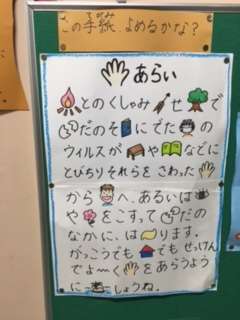 この手紙、よめるかな?
てがみ
あらい
とのくしゃみ、せで
だのそにでたの
ウィルスがやなどに
とびちりそれらをさわった
からへ、あるいは
やをこすってだの
なかに、はります。
がっこうでもでもせっけん
でよ〜くをあらうよう
にしょうね。